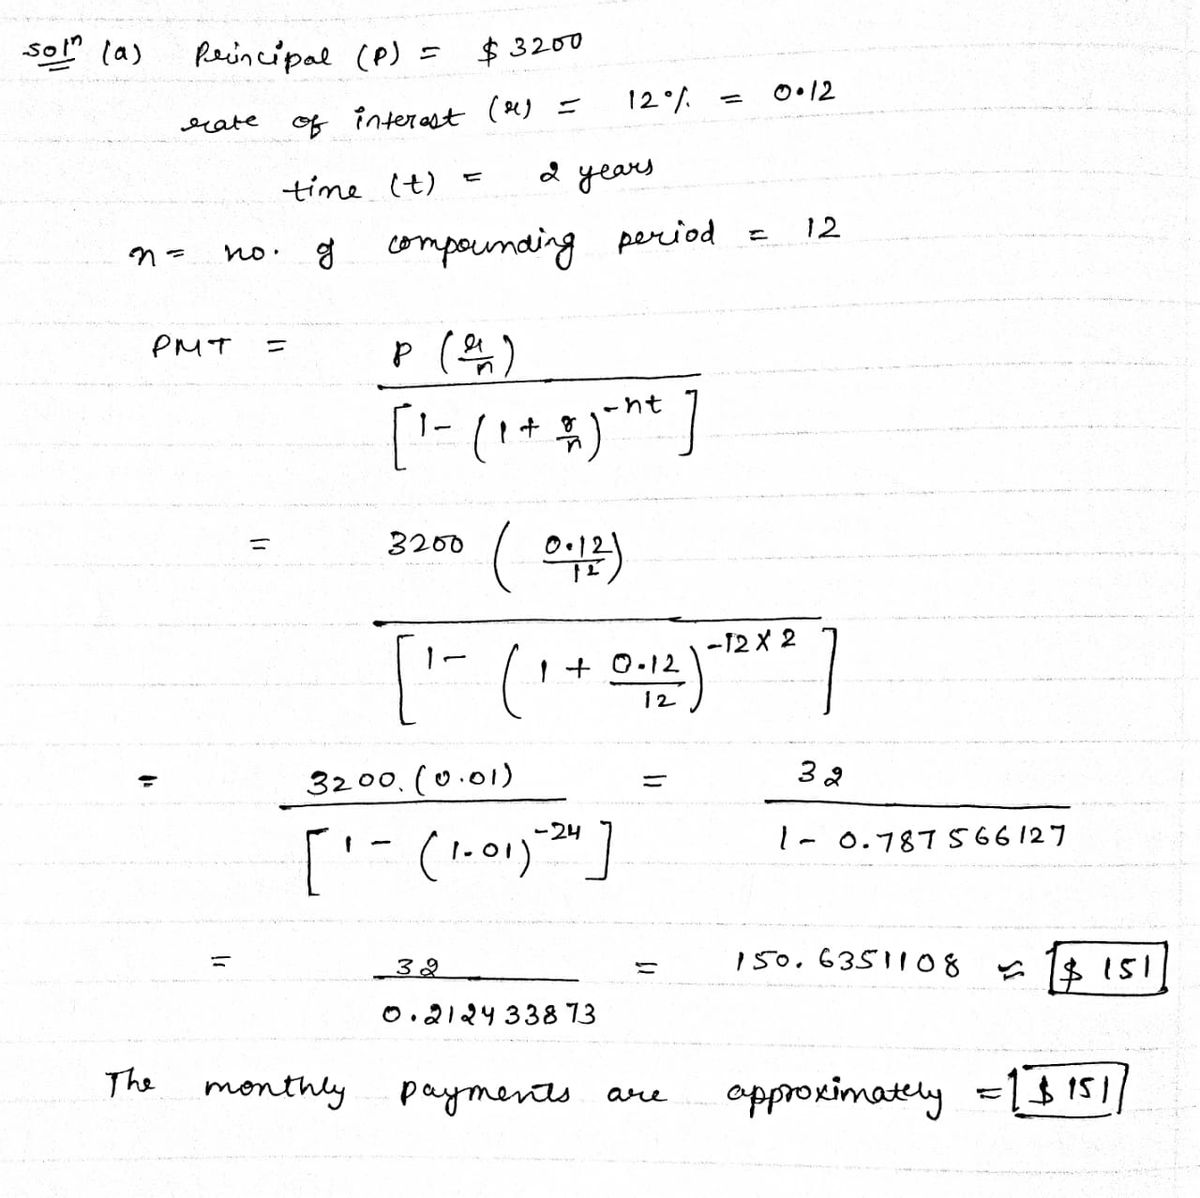 soln (a) Principal (P) = $3200
rate of interest (r) = 12% = 0.12
time (t) = 2 years
n = no. of compounding period = 12
PMT = P (r/n) / [1 - (1 + r/n)^-nt]
= 3200 (0.12/12) / [1 - (1 + 0.12/12)^-12×2]
= 3200.(0.01) / [1 - (1.01)^-24] = 32 / 1 - 0.787566127
= 32 / 0.212433873 = 150.6351108 ≈ $151
The monthly payments are approximately = $151